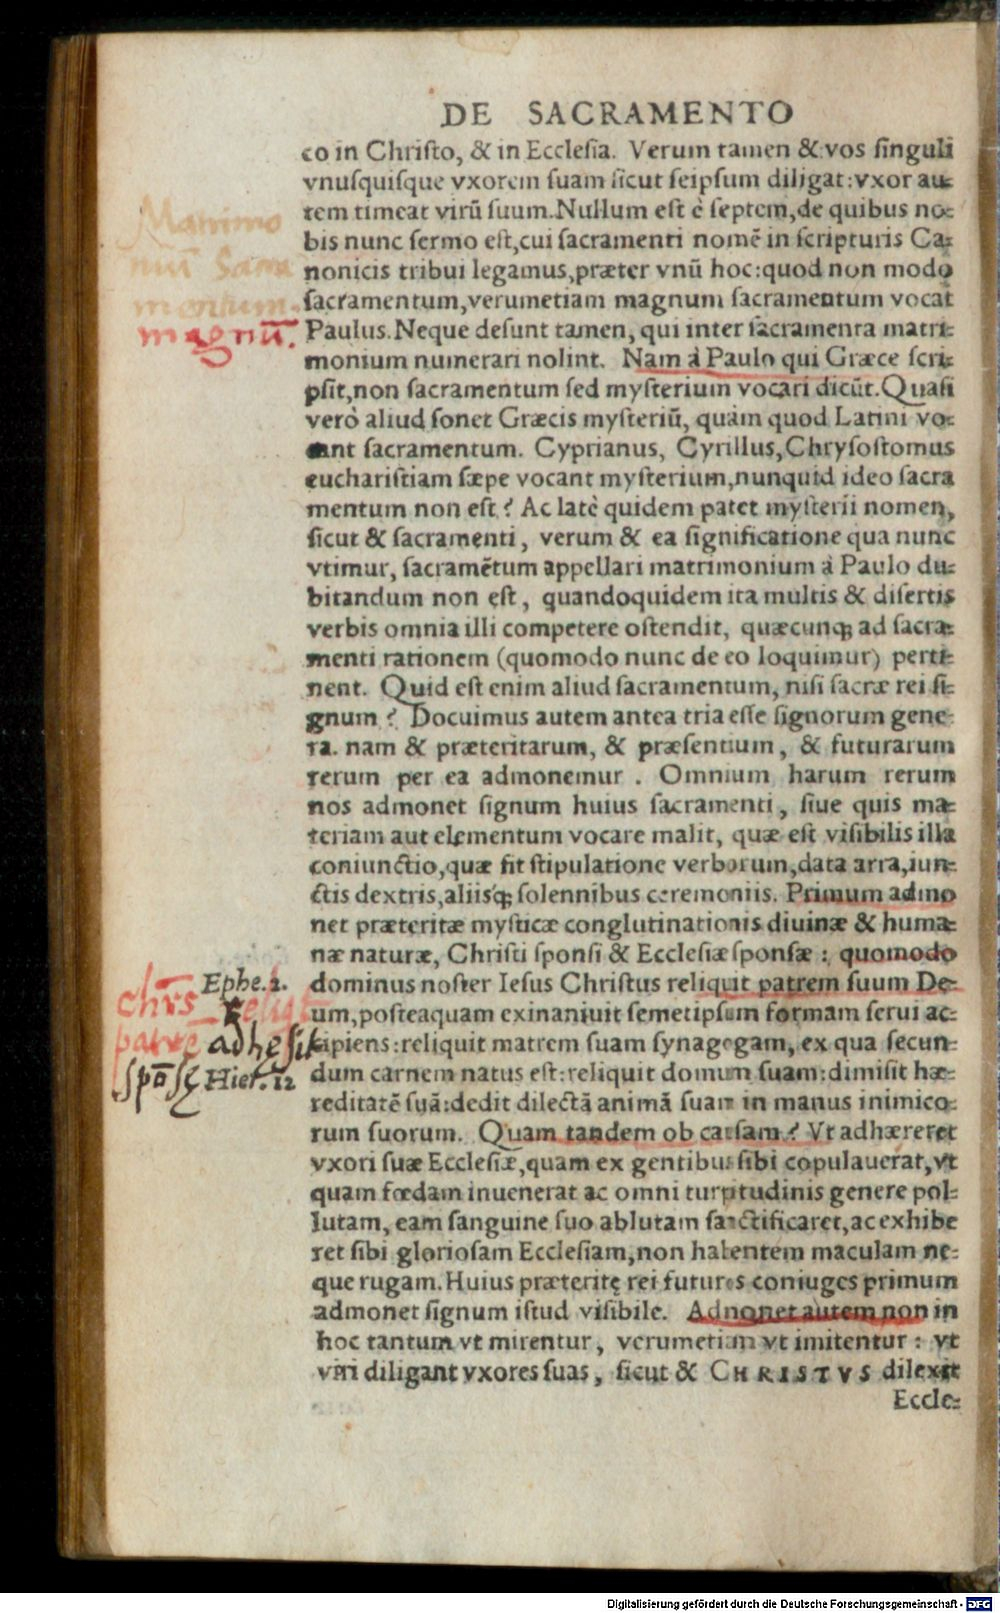 DE SACRAMENTO
co in Chriſto, & in Eccleſia. Verum tamen & vos ſinguli
vnuſquiſque vxorem ſuam ſicut ſeipſum diligat: vxor au-
tem timeat virū ſuum. Nullum eſt è ſeptem, de quibus no-
bis nunc ſermo eſt, cui ſacramenti nomē in ſcripturis Ca-
nonicis tribui legamus, præter vnū hoc: quod non modo
ſacramentum, verumetiam magnum ſacramentum vocat
Paulus. Neque deſunt tamen, qui inter ſacramenta matri-
monium numerari nolint. Nam à Paulo qui Græce ſcri-
pſit, non ſacramentum ſed myſterium vocari dicūt. Quaſi
verò aliud ſonet Græcis myſteriū, quàm quod Latini vo-
cant ſacramentum. Cyprianus, Cyrillus, Chryſoſtomus
euchariſtiam ſæpe vocant myſterium, nunquid ideo ſacra
mentum non eſt? Ac latè quidem patet myſterii nomen,
ſicut & ſacramenti, verum & ea ſignificatione qua nunc
vtimur, ſacramētum appellari matrimonium à Paulo du-
bitandum non eſt, quandoquidem ita multis & diſertis
verbis omnia illi competere oſtendit, quæcunq; ad ſacra-
menti rationem (quomodo nunc de eo loquimur) perti-
nent. Quid eſt enim aliud ſacramentum, niſi ſacræ rei ſi-
gnum? Docuimus autem antea tria eſſe ſignorum gene-
ra. nam & præteritarum, & præſentium, & futurarum
rerum per ea admonemur. Omnium harum rerum
nos admonet ſignum huius ſacramenti, ſiue quis ma-
teriam aut elementum vocare malit, quæ eſt viſibilis illa
coniunctio, quæ fit ſtipulatione verborum, data arra, iun-
ctis dextris, aliiſq; ſolennibus ceremoniis. Primum admo
net præteritæ myſticæ conglutinationis diuinæ & huma-
næ naturæ, Chriſti ſponſi & Eccleſiæ ſponſæ: quomodo
dominus noſter Ieſus Chriſtus reliquit patrem ſuum De-
um, poſteaquam exinaniuit ſemetipſum formam ſerui ac-
cipiens: reliquit matrem ſuam ſynagogam, ex qua ſecun-
dum carnem natus eſt: reliquit domum ſuam: dimiſit hæ-
reditatē ſuā: dedit dilectā animā ſuam in manus inimico-
rum ſuorum. Quam tandem ob cauſam? Vt adhæreret
vxori ſuæ Eccleſiæ, quam ex gentibus ſibi copulauerat, vt
quam fœdam inuenerat ac omni turpitudinis genere pol-
lutam, eam ſanguine ſuo ablutam ſanctificaret, ac exhibe
ret ſibi glorioſam Eccleſiam, non habentem maculam ne-
que rugam. Huius præteritę rei futuros coniuges primum
admonet ſignum iſtud viſibile. Admonet autem non in
hoc tantum vt mirentur, verumetiam vt imitentur: vt
viri diligant vxores ſuas, ſicut & CHRISTVS dilexit
Eccle-
Matrimo
niū Sacra
mentum
magnū.
Ephe. 2.
chrs reliqt
patrē adhęſit
ſpōſę Hier. 12